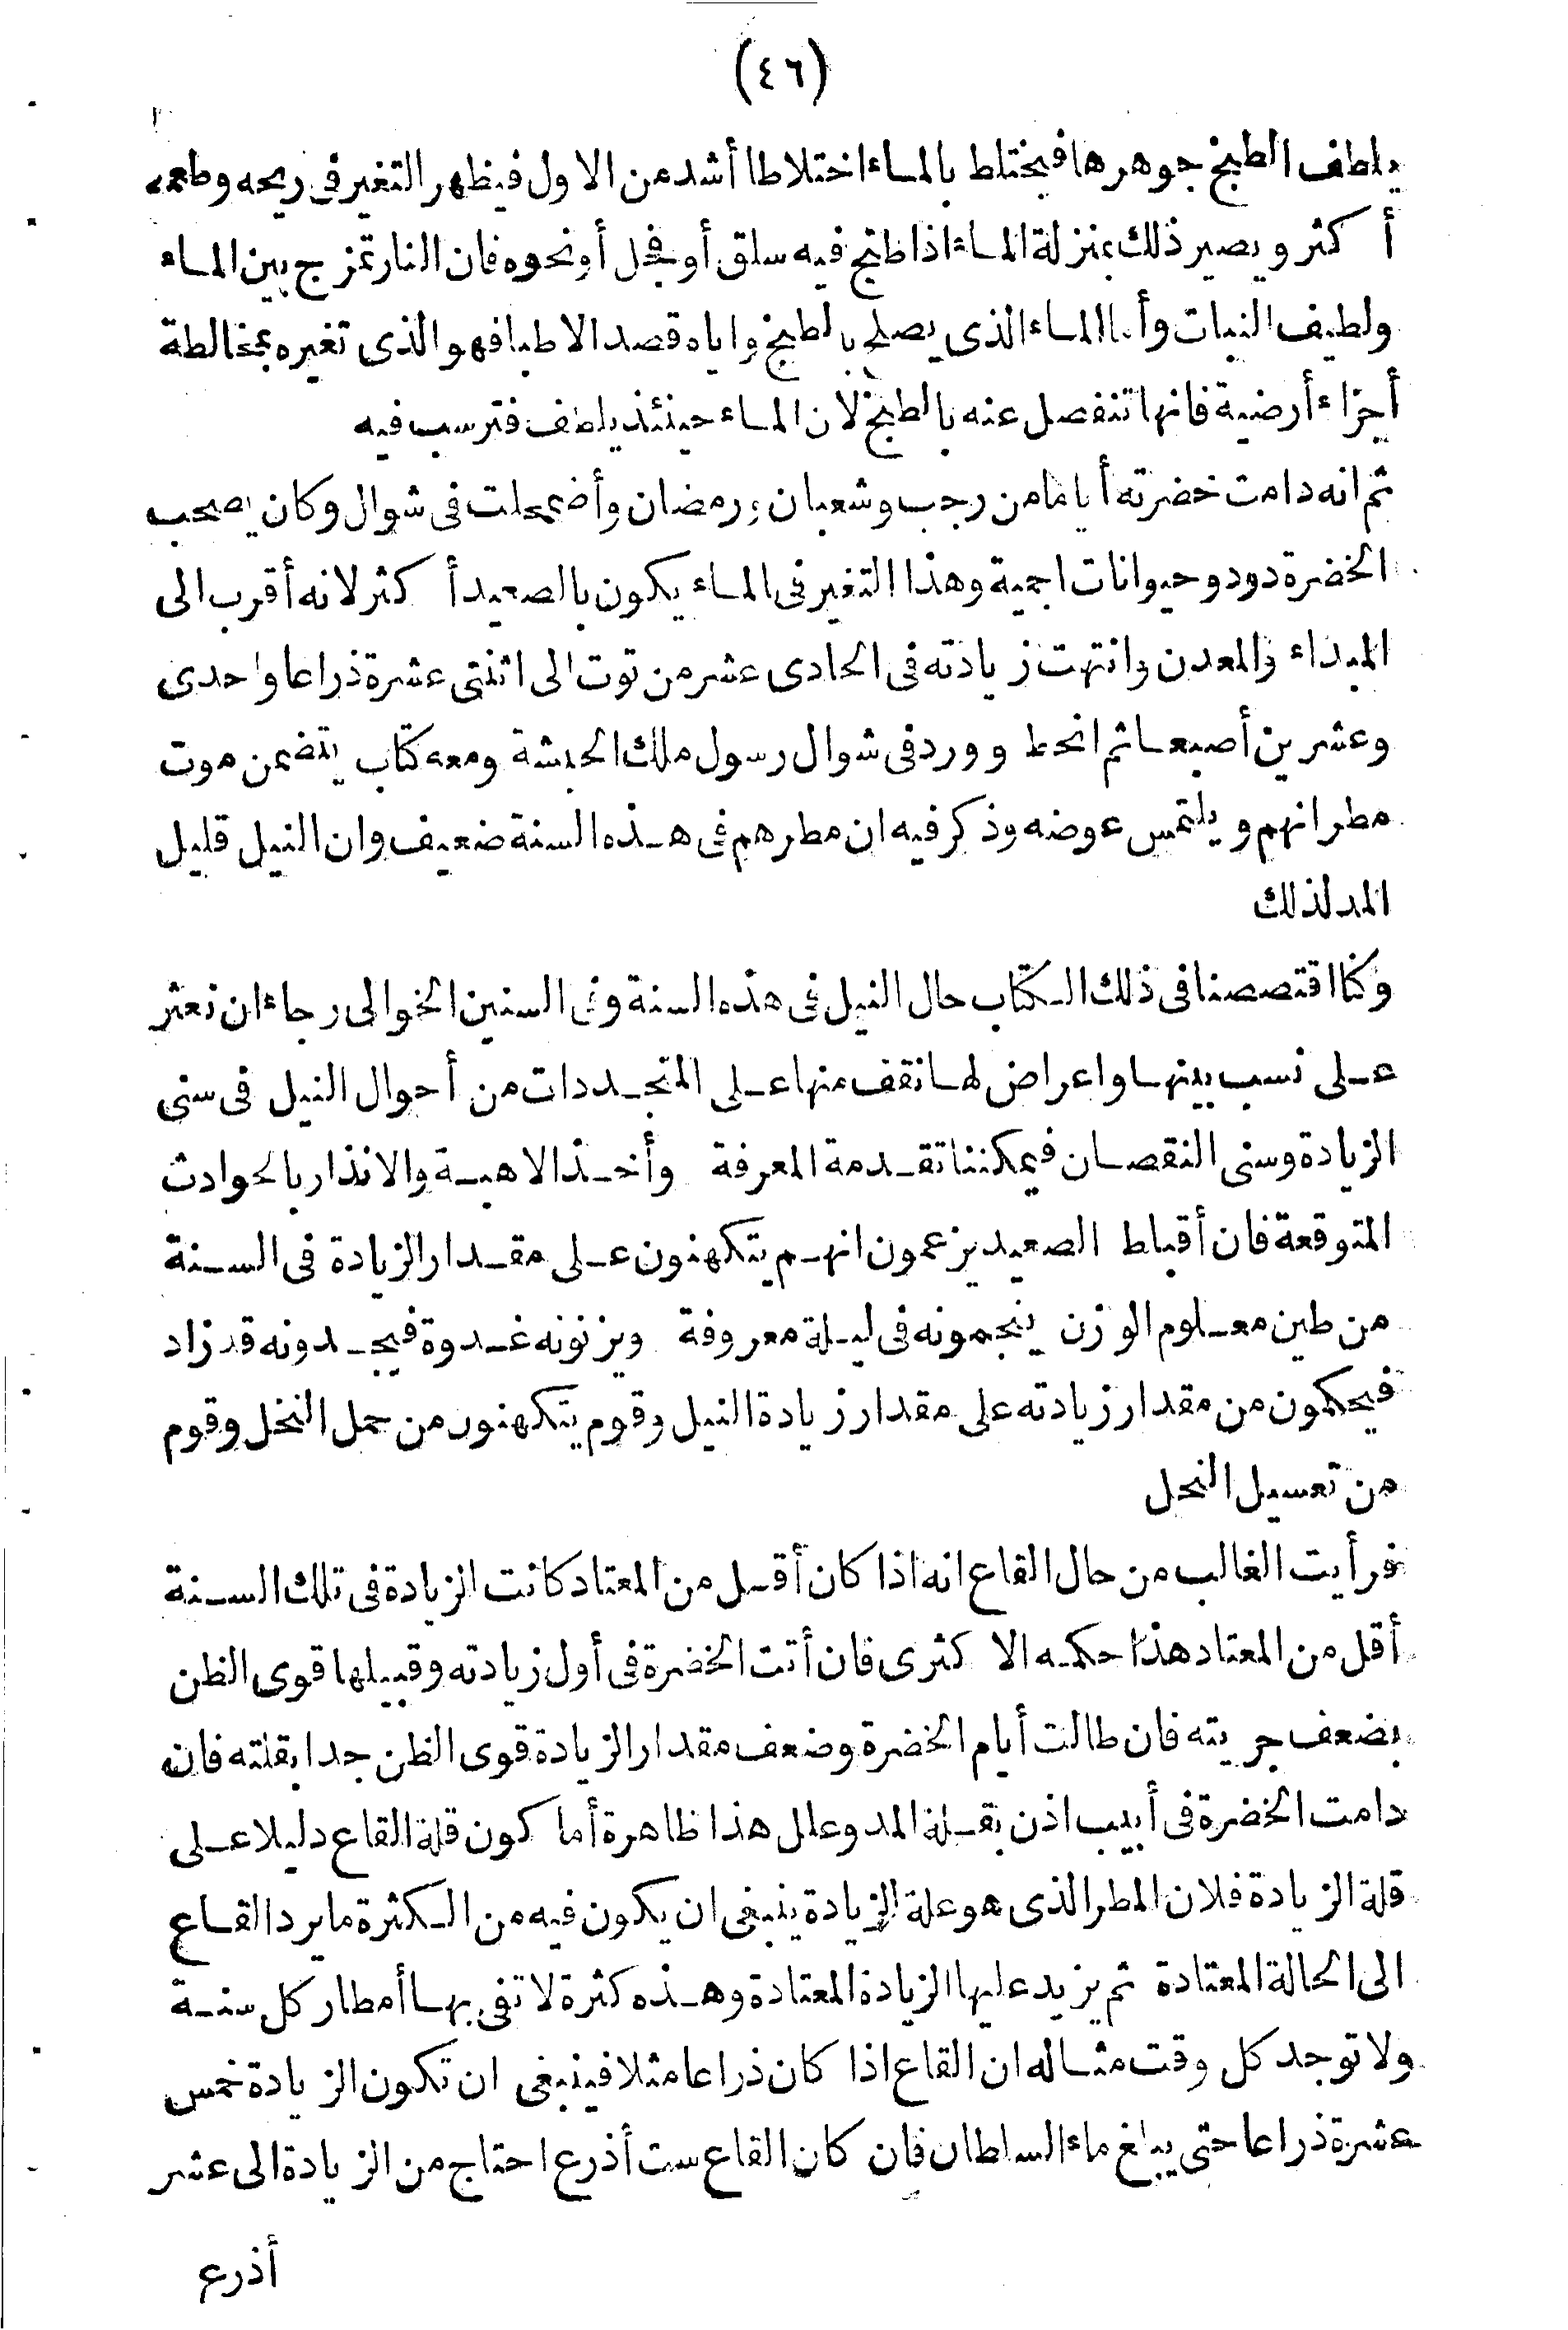 (٤٦)
يلطف الطبخ جوهرها فيختلط بالماء اختلاطا أشد من الاول فيظهر التغير فى ريحه وطعمه
أكثر ويصير ذلك بمنزلة الماء اذا طبخ فيه سلق أو فجل أو نحوه فان النار تمزج بين الماء
ولطيف النبات وأما الماء الذى يصلح بالطبخ واياه قصد الاطبا فهو الذى تغيره بمخالطة
أجزاء أرضية فانها تنفصل عنه بالطبخ لان الماء حينئذ يلطف فترسب فيه
ثم انه دامت خضرته أياما من رجب وشعبان ورمضان وأضمحلت فى شوال وكان يصحب
الخضرة دود وحيوانات اجمية وهذا التغير فى الماء يكون بالصعيد أكثر لانه أقرب الى
المبداء والمعدن وانتهت زيادته فى الحادى عشر من توت الى اثنتى عشرة ذراعا واحدى
وعشرين أصبعا ثم انحط وورد فى شوال رسول ملك الحبشة ومعه كتاب يتضمن موت
مطرانهم ويلتمس عوضه وذكر فيه ان مطرهم فى هذه السنة ضعيف وان النيل قليل
المد لذلك
وكنا اقتصصنا فى ذلك الكتاب حال النيل فى هذه السنة وفى السنين الخوالى رجاء ان نعثر
على نسب بينها واعراض لها نقف منها على المتجددات من أحوال النيل فى سنى
الزيادة وسنى النقصان فيمكننا تقدمة المعرفة وأخذ الاهبة والانذار بالحوادث
المتوقعة فان أقباط الصعيد يزعمون انهم يتكهنون على مقدار الزيادة فى السنة
من طين معلوم الوزن ينجمونه فى ليلة معروفة ويزنونه غدوة فيجدونه قد زاد
فيحكمون من مقدار زيادته على مقدار زيادة النيل وقوم يتكهنون من حمل النخل وقوم
من تعسيل النحل
فرأيت الغالب من حال القاع انه اذا كان أقل من المعتاد كانت الزيادة فى تلك السنة
أقل من المعتاد هذا حكمه الاكثرى فان أتت الخضرة فى أول زيادته وقبيلها قوى الظن
بضعف جريته فان طالت أيام الخضرة وضعف مقدار الزيادة قوى الظن جدا بقلته فان
دامت الخضرة فى أبيب اذن بقلة المد وعلل هذا ظاهرة أما كون قلة القاع دليلا على
قلة الزيادة فلان المطر الذى هو علة الزيادة ينبغى ان يكون فيه من الكثرة ما يرد القاع
الى الحالة المعتادة ثم يزيد عليها الزيادة المعتادة وهذه كثرة لا تفى بها أمطار كل سنة
ولا توجد كل وقت مثاله ان القاع اذا كان ذراعا مثلا فينبغى ان تكون الزيادة خمس
عشرة ذراعا حتى يبلغ ماء السلطان فان كان القاع ست أذرع احتاج من الزيادة الى عشر
أذرع